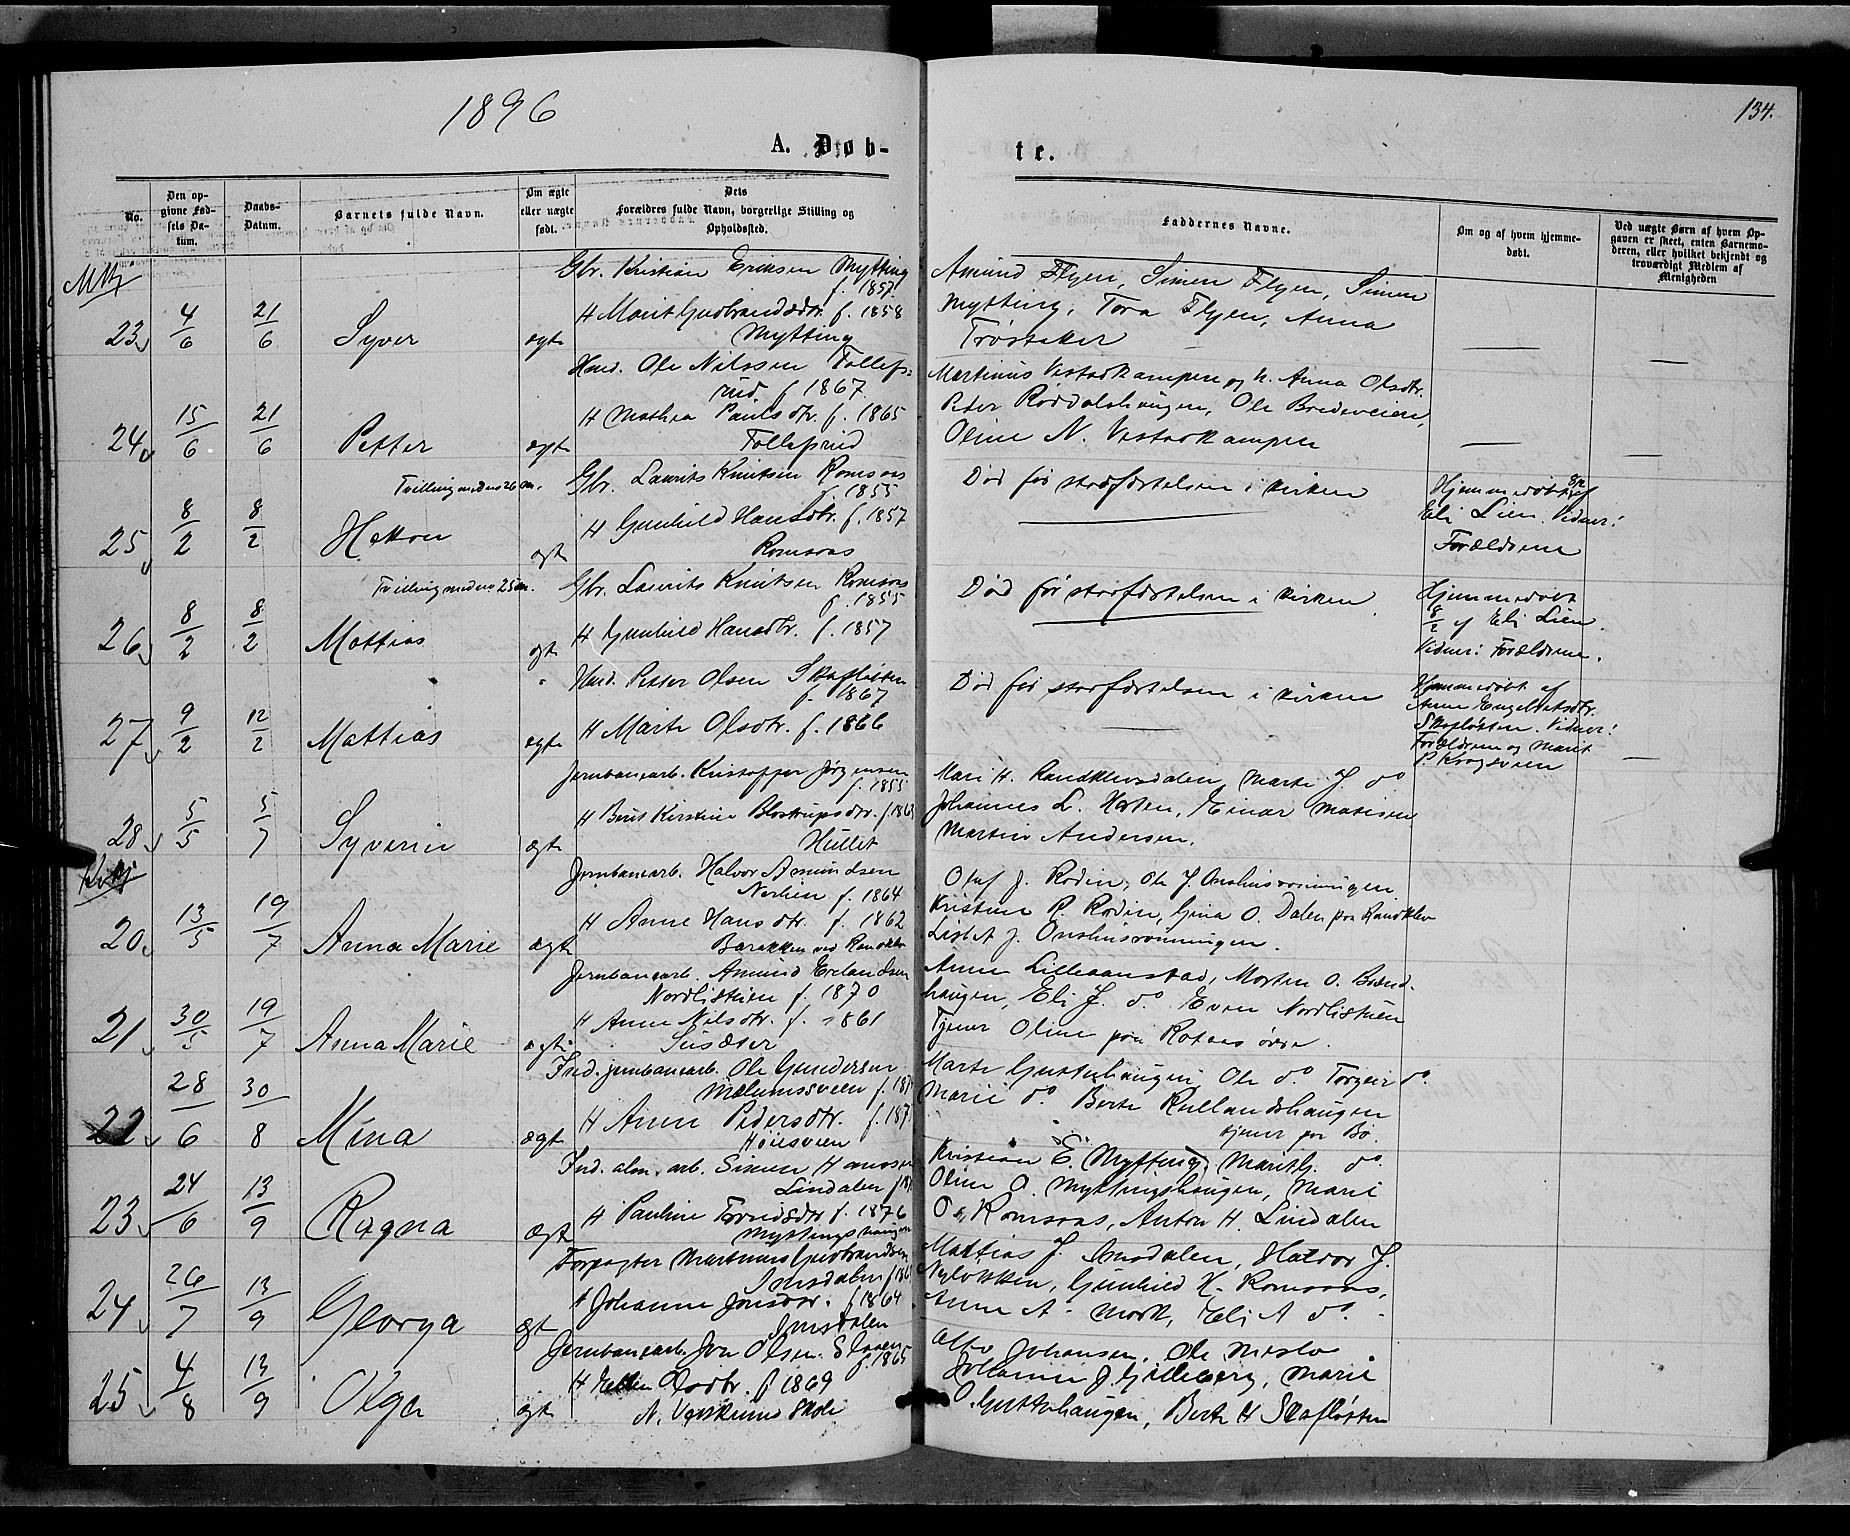 1896
134.
A. Døb-
te.
No.
Den op-
givne Fød-
sels Da-
tum.
Daabs-
Datum.
Barnets fulde Navn.
Om ægte
eller uægte
født.
Dets
Forældres fulde Navn, borgerlige Stilling og
Opholdssted.
Faddernes Navne.
Om og af hvem hjemme-
døbt.
Ved uægte Børn af hvem Op-
gaven er skeet, enten Barnemo-
deren, eller hvilket bekjendt og
troværdigt Medlem af
Menigheden
23 4/6 21/6 Syver ægte
Gbr. Kristian Eriksen Mytting
f. 1857
H Marit Gudbrandsdtr. f. 1858
Mytting
Amund Flyen, Simen Flyen, Simen
Mytting, Tora Flyen, Anna
Trøstaker
24 15/6 21/6 Petter ægte
Husd. Ole Nilssen Tollefs=
rud f 1867
H Mathea Paulsdtr. f. 1865
Tollefsrud
Martinus Vestadkampen og h. Anna Olsdtr.
Peter Røddalshaugen, Ole Bredeveien,
Oline N. Vestadkampen
Tvilling med no 26
25 8/2 8/2 Hakon ægte
Gbr. Laurits Knutsen Romsaas
f. 1855
H Gunhild Hansdtr. f. 1857
Romsaas
Død før stadfæstelsen i kirken
Hjemmedøbt 8/2 af
Eli Lien. Vidner:
Forældrene
Tvilling med no 25
26 8/2 8/2 Mattias ægte
Gbr. Laurits Knutsen Romsaas
f. 1855
H Gunhild Hansdtr. f. 1857
Død før stadfæstelsen i kirken
Hjemmedøbt
8/2 af Eli Lien.
Vidner: Forældrene.
27 9/2 12/2 Mattias ægte
Husd. Petter Olsen Skafløtten
f. 1867
H Marte Olsdtr. f. 1866
Død før stadfæstelsen i kirken
Hjemmedøbt af
Anne Engebretsdtr.
Skafløtten. Vidner:
Forældrene og Marit
P. Krogsveen
28 5/5 5/7 Syverin ægte
Jernbanearb. Kristoffer Jørgensen
f. 1855
H Berit Kirstine
Hullet
Mari H. Randklevsdalen, Marte J. do
Johannes L. Horten, Einar Matisen
Martin Andersen.
20 13/5 19/7 Anna Marie ægte
Jernbanearb. Halvor Amundsen
Nerlien f. 1864
H Anne Hansdtr. f. 1862
Barakken ved Randklev
Olaf J. Rodin, Ole J.
Kristine P. Rodin, Gina O. Dalen paa Randklev
21 30/5 19/7 Anna Marie ægte
Jernbanearb. Amund Erlandsen
Nordlistuen f. 1870
H Anne Nilsdtr. f. 1861
Anne Lilleaanstad, Morten O. Brænd-
haugen, Eli J. do Even Nordlistuen
Tjener Oline paa
22 28/6 30/8 Mina ægte
Ind. jernbanearb. Ole Gundersen
H Anne Pedersdtr. f. 187
Marte Gutterhaugen, Ole do Torgeir do.
Marie do Berte Rullandshaugen
tjener paa Bø.
23 24/6 13/9 Ragna ægt
Ind. alm. arb. Simen Hansen
Lindalen
H Pauline f. 1876
Myttingshaugen
Kristian E. Mytting, Marit G. do.
Oline O. Myttingshaugen, Marie
O. Romsaas, Anton H. Lindalen
24 26/7 13/9 Georga ægt
Forpagter Martinus Gudbrandsen
Imsdalen
H Johanne Jonsdtr. f 1864
Imsdalen
Mattias J. Imsdalen, Halvor J.
Nyløkken, Gunhild H. Romsaas,
Anne A. Mork, Eli A do.
25 4/8 13/9 Olga ægt
Jernbanearb. Jon Olsen
f. 1865
H f 1869
Skole
Johansen, Ole Meslo
Johanne J. Gilleberg, Marie
O. Gutterhaugen, Berte H Skafløtten